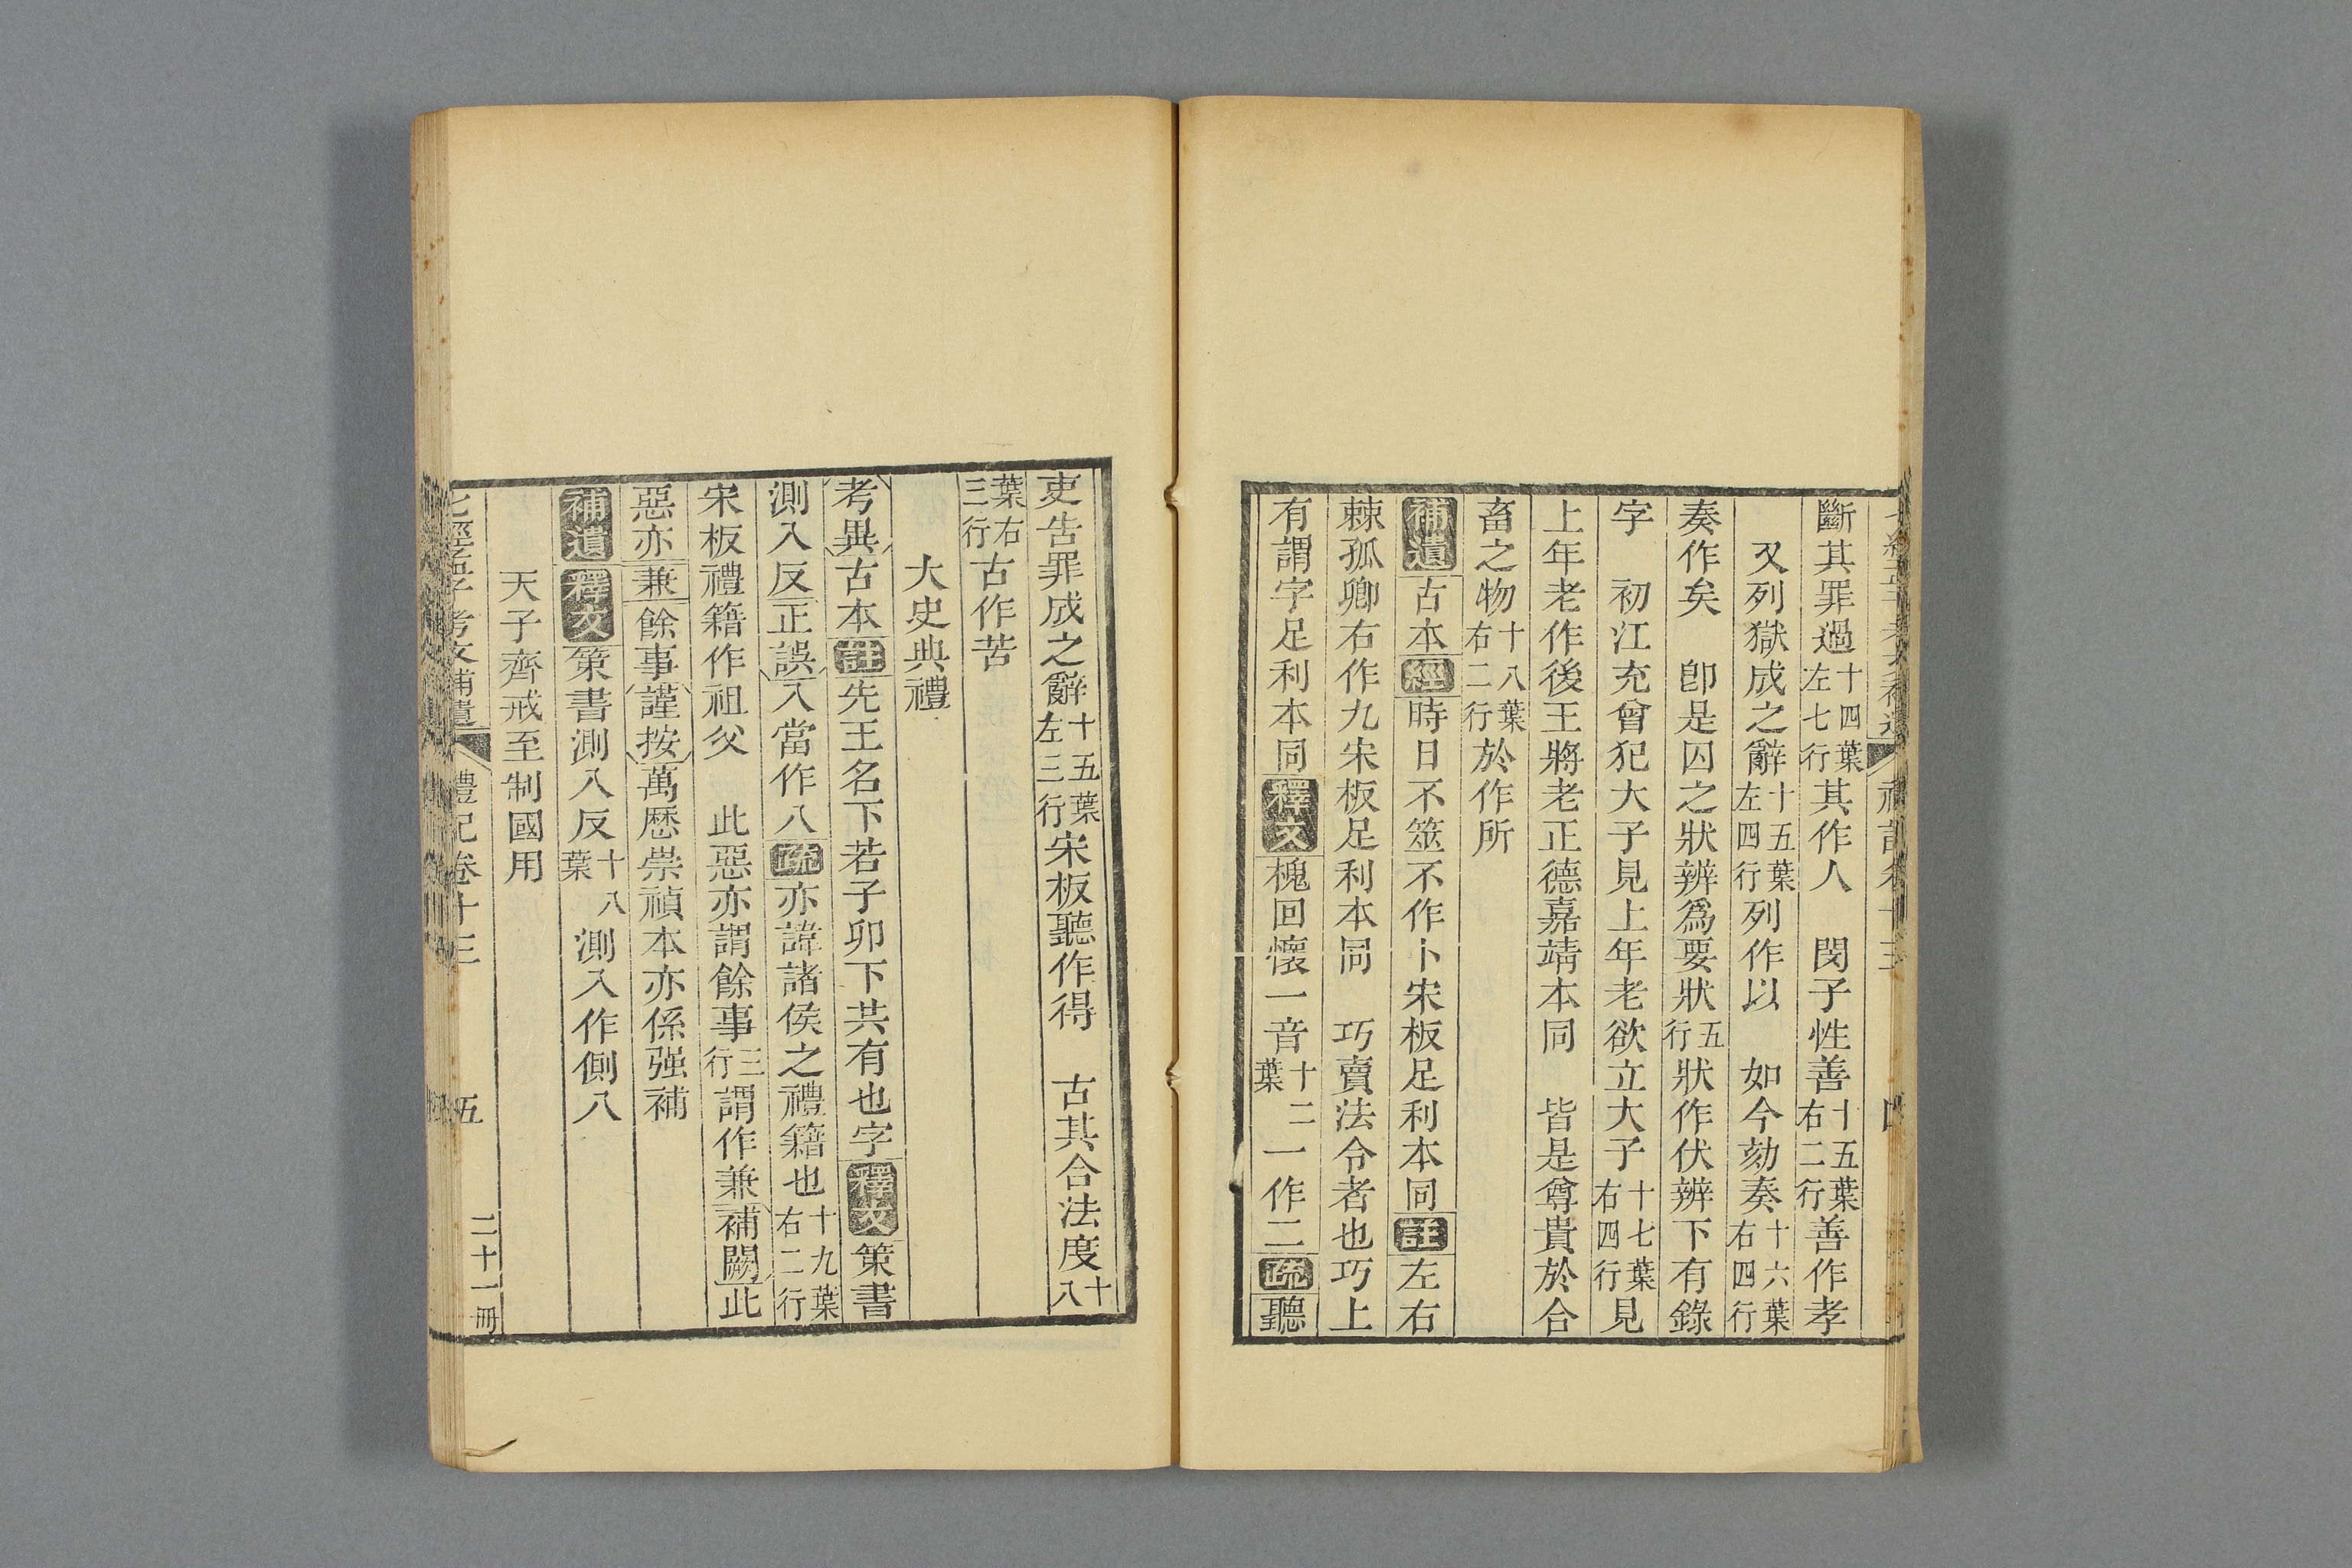 斷其罪過十四葉左七行其作人　閔子性善十五葉右二行善作孝
又列獄成之辭十五葉左四行列作以　如今劾奏十六葉右四行
奏作矣　卽是囚之狀辨爲要狀五行狀作伏辨下有錄
字　初江充曾犯大子見上年老欲立大子十七葉右四行見
上年老作後王將老正德嘉靖本同　皆是尊貴於合
畜之物十八葉右二行於作所
補遺古本經時日不筮不作卜宋板足利本同註左右
棘孤卿右作九宋板足利本同　巧賣法令者也巧上
有謂字足利本同釋文槐回懷一音十二葉一作二疏聽
吏告罪成之辭十五葉左三行宋板聽作得　古其合法度十八
葉右三行古作苦
大史典禮
考異古本註先王名下若子卯下共有也字釋文策書
測入反正誤入當作八疏亦諱諸侯之禮籍也十九葉右二行
宋板禮籍作祖父　此惡亦謂餘事三行謂作兼補闕此
惡亦兼餘事謹按萬歷崇禎本亦係强補
補遺釋文策書測入反十八葉測入作側八
天子齊戒至制國用
七經孟子考文補遺　禮記卷十三　五　二十一冊